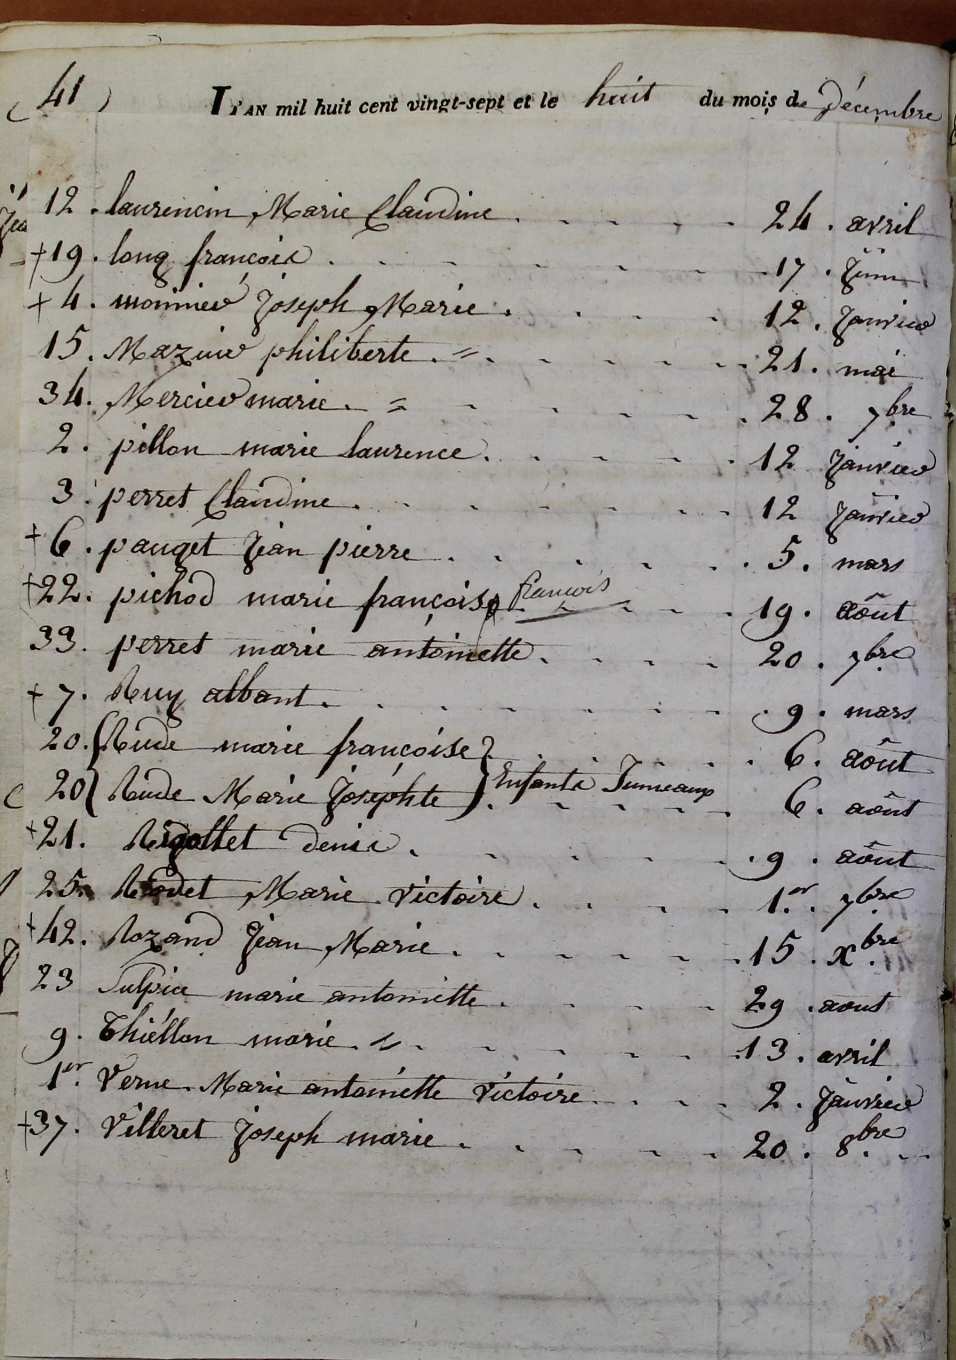 ( 41 )
L'AN mil huit cent vingt-sept et le huit du mois de décembre
12. laurencin Marie Claudine . . . . 24. avril
+19. long françois . . . . 17. Juin
+ 4. monnier Joseph Marie . . . . 12. Janvier
15. Mazuir philiberte . = . . . . 21. mai
34. Mercier marie . = . . . . 28. 7bre
2. pillon marie laurence . . . . 12 Janvier
3. perret Claudine . . . . 12 Janvier
+6. pauget Jean pierre . . . . 5. mars
+22. pichod marie françoise françois . . 19. août
33. perret marie antoinette . . . . 20. 7bre
+ 7. Ruy albant . . . . 9. mars
20. { Rude marie françoise } . . . . 6. août
20 { Rude Marie Joséphte } Enfants Jumeaux . . . . 6. août
+21. Rigollet denis . . . . 9. août
25. Rodet Marie victoire . . . . 1.er 7bre
+42. Rozand Jean Marie . . . . 15. Xbre
23 Sulpice marie antoinette . . . . 29. aout
9. Thiéllon marie . = . . . . 13. avril
1er. Verne Marie antoinette victoire . . . . 2. Janvier
+37. Villeret Joseph marie . . . . 20. 8bre